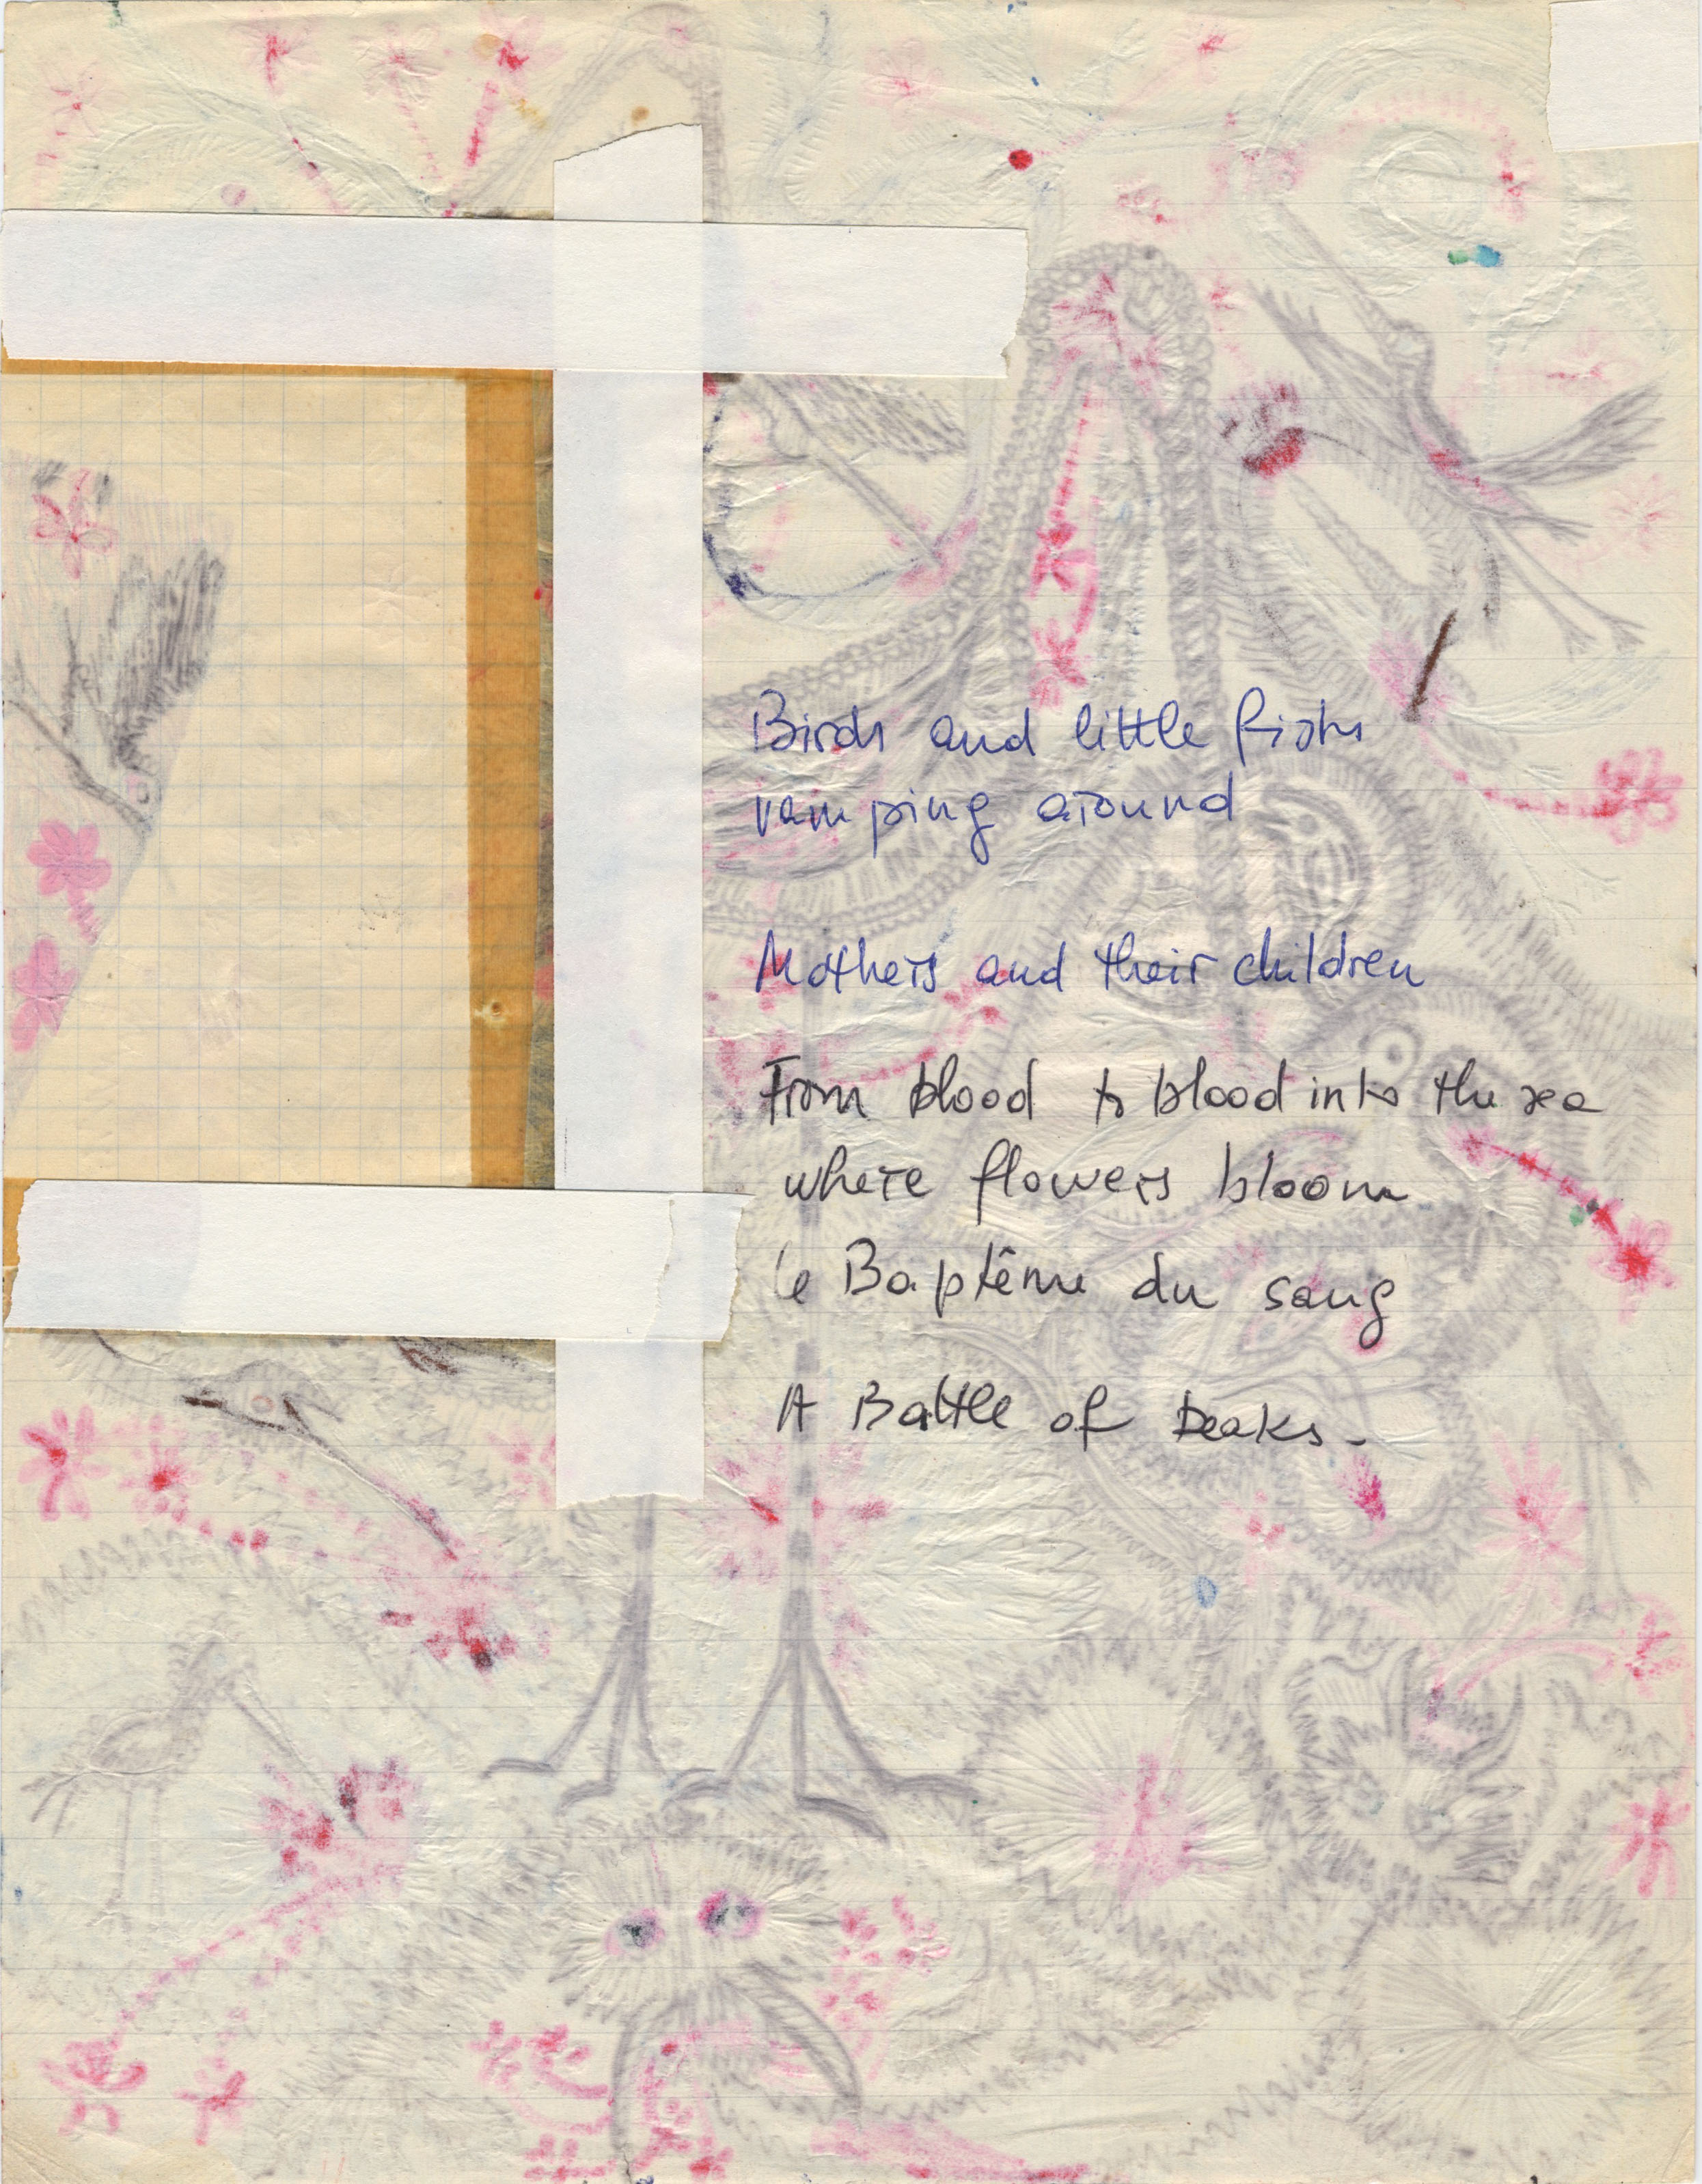 Birds and little fishs
vamping around
Mothers and their children
From blood to blood into the sea
where flowers bloom
le Baptême du sang
A Battle of beaks.